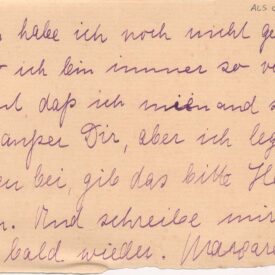 ALS
habe ich noch nicht ge
ich bin immer so ve
daß ich niemand s
außer Dir, aber ich leg
bei, gib das bitte He
Und schreibe mir
bald wieder. Margare